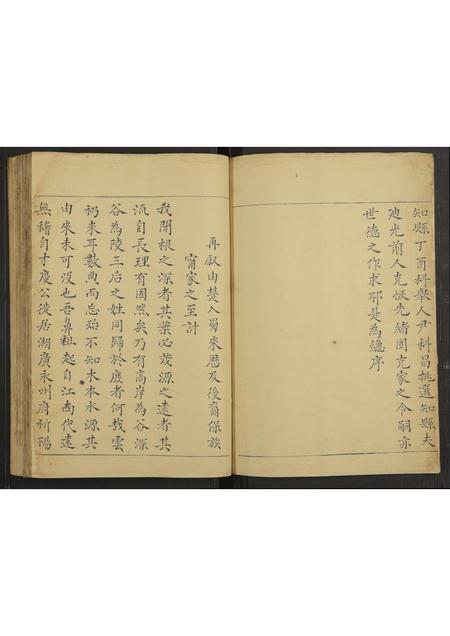 知縣丁酉科舉人尹科昌挑選知縣夫
迪光前人克恢先緒固克家之令嗣亦
世德之作求耶是為總序
再叙由楚入蜀來歷及後裔保族
甯家之至計
我聞根之深者其葉必茂源之遠者其
流自長理有固然矣乃有高岸為谷深
谷為陵三后之姓同歸於庶者何哉雲
礽來耳數典而忘殆不知木本水源其
由來未可沒也吾鼻祖起自江西代遠
無稽自才慶公徙居湖廣永州府祈陽